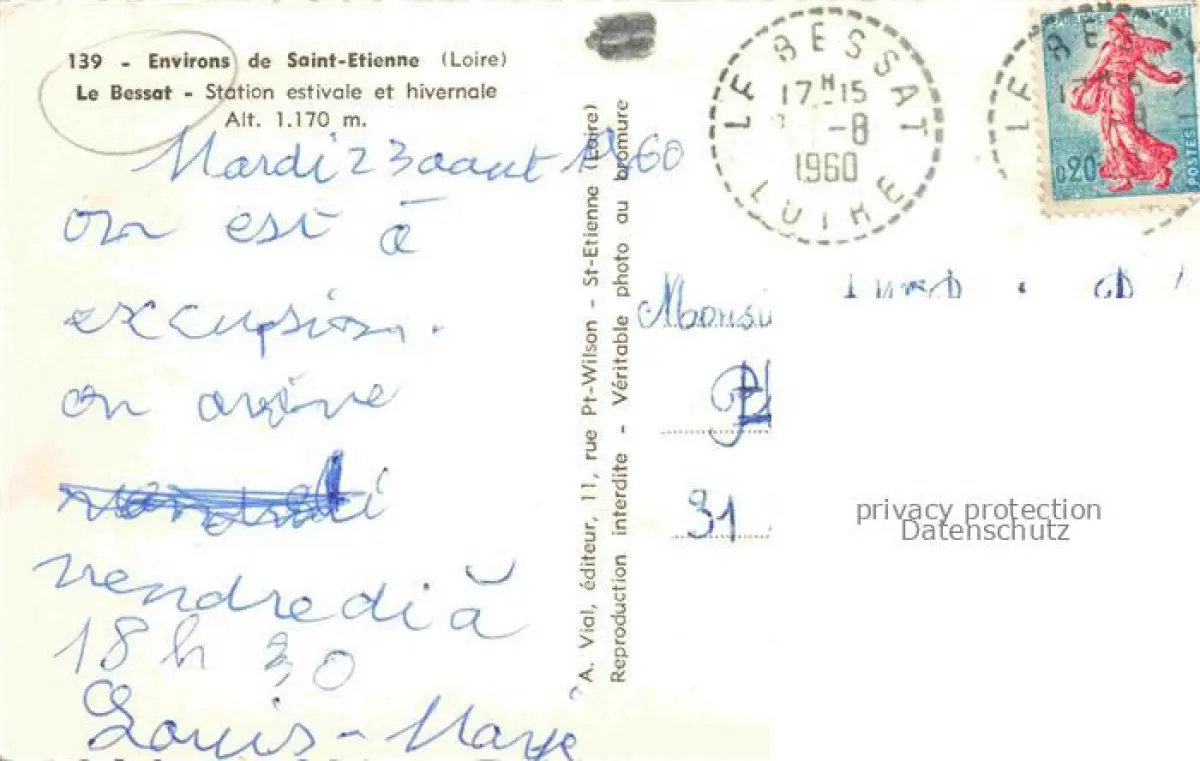 139 - Environs de Saint-Etienne (Loire)
Le Bessat - Station estivale et hivernale
Alt. 1.170 m.
Mardi 23 aout 1960
on est à
excupsion.
on arive
vendredi
vendredi à
18 h 30
Louis-Marie
A. Vial, éditeur, 11, rue Pt-Wilson - St-Etienne (Loire)
Reproduction interdite - Véritable photo au bromure
LE BESSAT
17H-15
-8
1960
LOIRE
LE BESSAT
0,20
POSTES
Monsi
31
privacy protection
Datenschutz